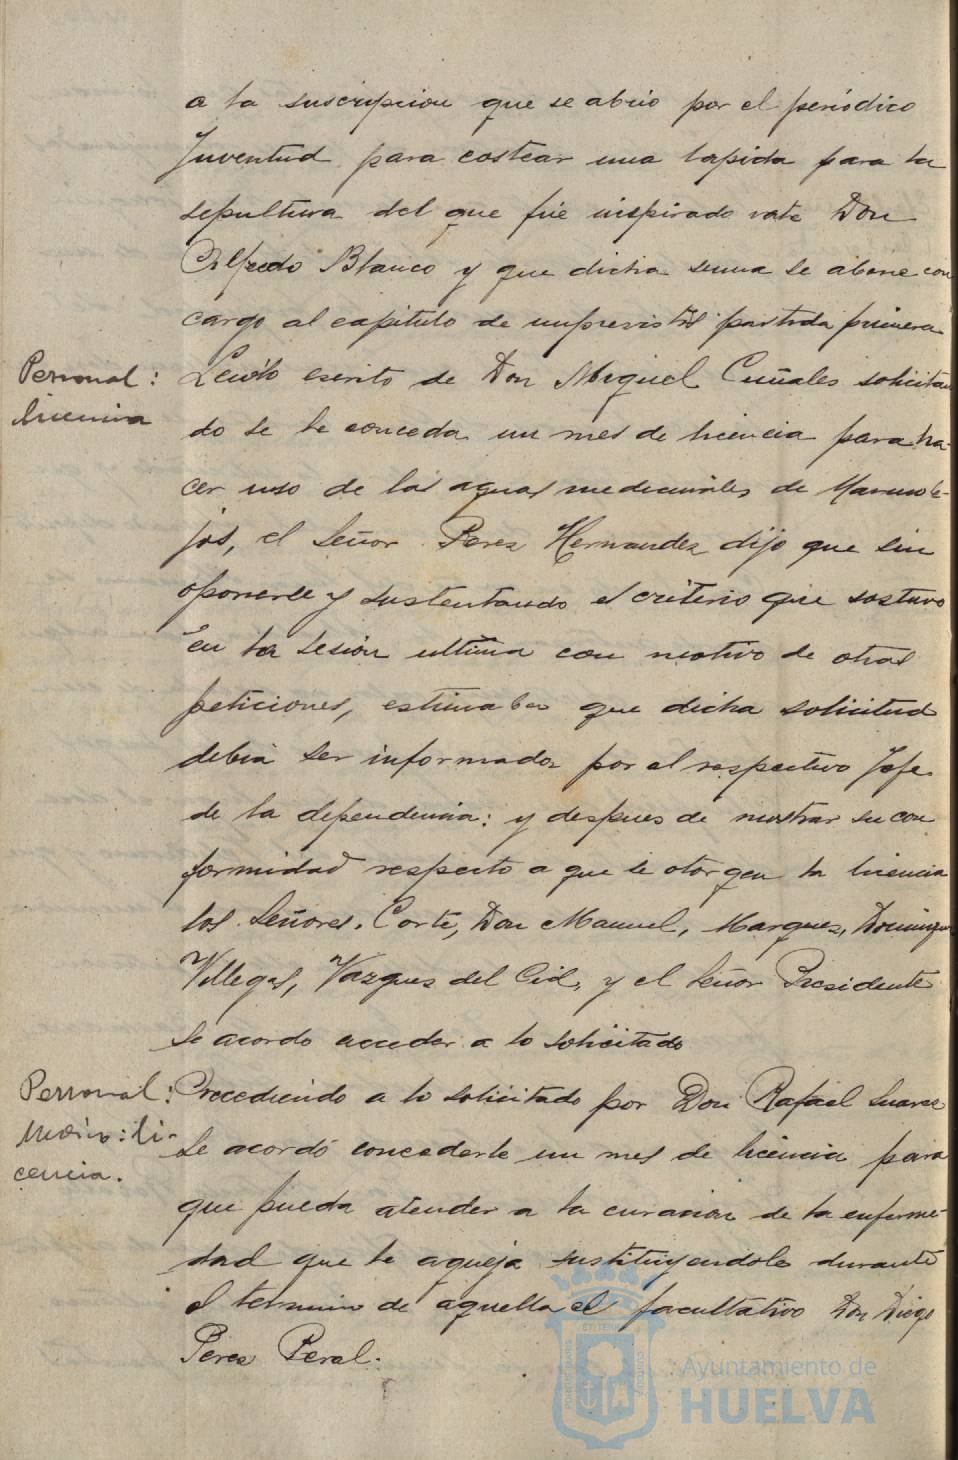 a la suscripcion que se abrio por el periódico
Juventud para costear una lapida para la
sepultura del que fué inspirado vate Don
Alfredo Blanco y que dicha suma se abone con
cargo al capitulo de imprevistos partida primera
Personal:
licencia
Leido escrito de Don Miguel Cuñales solicitan
do se le conceda un mes de licencia para ha-
cer uso de las aguas medicinales de Marmole-
jos, el Señor Perez Hernandez dijo que sin
oponerse y sustentando el criterio que sostuvo
en la sesion ultima con motivo de otras
peticiones, estimaba que dicha solicitud
debia ser informada por el respectivo Jefe
de la dependencia: y despues de mostrar su con
formidad respecto a que se otorgen la licencia
los Señores. Corte, Don Manuel, Marquez, Dominguez
Villegas, Vazquez del Cid, y el Señor Presidente
se acordo acceder a lo solicitado
Personal:
Medico: li-
cencia.
Accediendo a lo solicitado por Don Rafael Suarez
se acordó concederle un mes de licencia para
que pueda atender a la curacion de la enferme-
dad que le aqueja sustituyendole durante
el termino de aquella el facultativo Don Diego
Perez Peral.
Ayuntamiento de
HUELVA